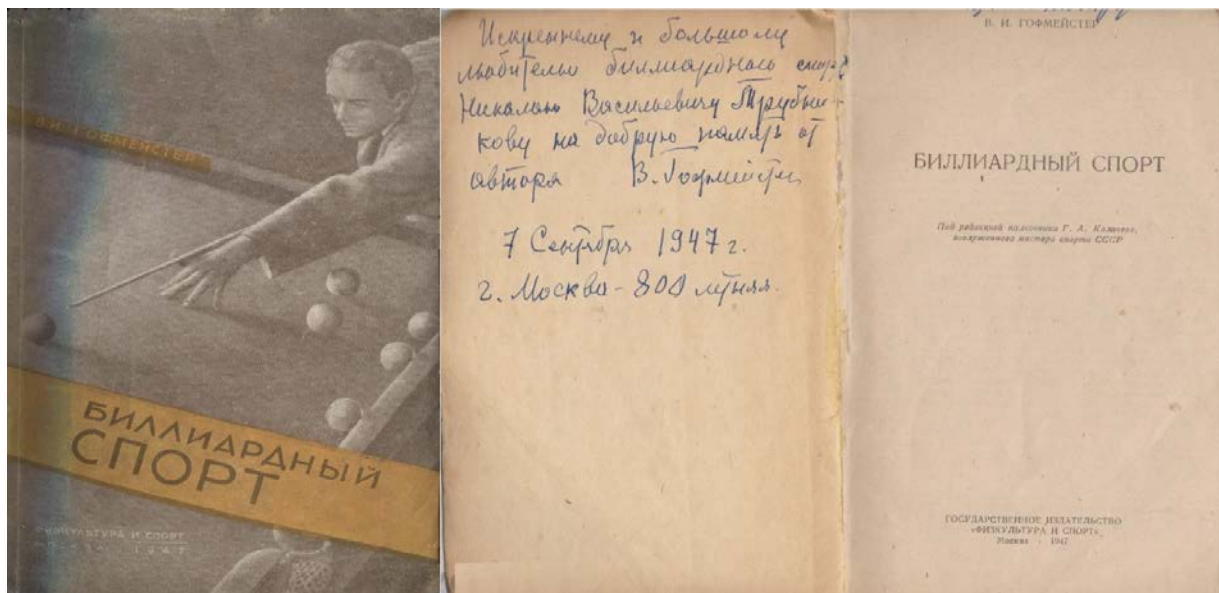 В. И. ГОФМЕЙСТЕР
БИЛЛИАРДНЫЙ
СПОРТ
ФИЗКУЛЬТУРА И СПОРТ
МОСКВА 1947
Искреннему и большому
любителю биллиардного
Николаю Васильевичу Трубни-
кову на добрую память от
автора В. Гофмейстер
7 Сентября 1947 г.
г. Москва - 800 летняя.
В. И. ГОФМЕЙСТЕР
БИЛЛИАРДНЫЙ СПОРТ
Под редакцией полковника Г. А.
заслуженного мастера спорта СССР
ГОСУДАРСТВЕННОЕ ИЗДАТЕЛЬСТВО
«ФИЗКУЛЬТУРА И СПОРТ»
Москва · 1947